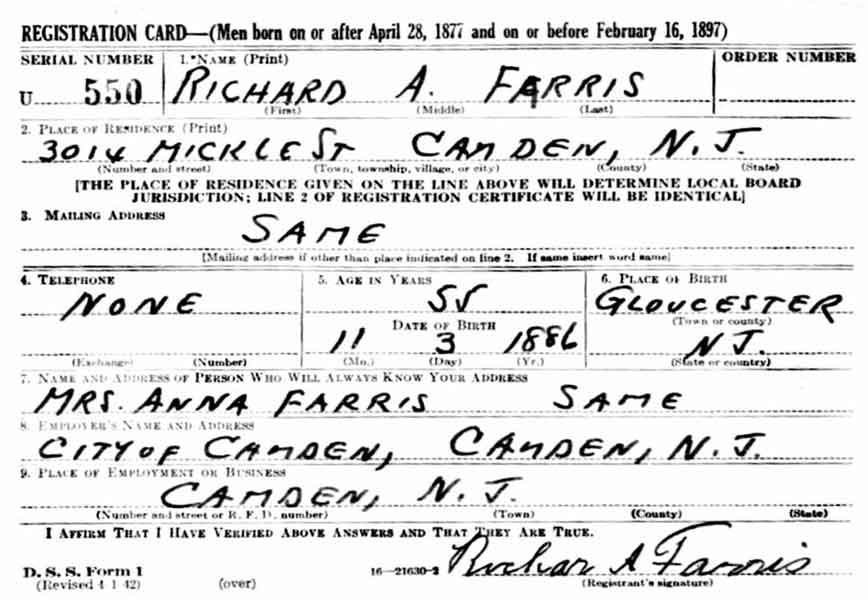 REGISTRATION CARD—(Men born on or after April 28, 1877 and on or before February 16, 1897)
SERIAL NUMBER 1. NAME (Print) ORDER NUMBER
U 550 RICHARD A. FARRIS
(First) (Middle) (Last)
2. PLACE OF RESIDENCE (Print)
3014 MICKLE ST CAMDEN, N.J.
(Number and street) (Town, township, village, or city) (County) (State)
[THE PLACE OF RESIDENCE GIVEN ON THE LINE ABOVE WILL DETERMINE LOCAL BOARD
JURISDICTION; LINE 2 OF REGISTRATION CERTIFICATE WILL BE IDENTICAL]
3. MAILING ADDRESS
SAME
[Mailing address if other than place indicated on line 2. If same insert word same]
4. TELEPHONE 5. AGE IN YEARS 6. PLACE OF BIRTH
NONE 55 GLOUCESTER
(Town or county)
DATE OF BIRTH
11 3 1886 N.J.
(Exchange) (Number) (Mo.) (Day) (Yr.) (State or country)
7. NAME AND ADDRESS OF PERSON WHO WILL ALWAYS KNOW YOUR ADDRESS
MRS. ANNA FARRIS SAME
8. EMPLOYER'S NAME AND ADDRESS
CITY OF CAMDEN, CAMDEN, N.J.
9. PLACE OF EMPLOYMENT OR BUSINESS
CAMDEN, N.J.
(Number and street or R. F. D. number) (Town) (County) (State)
I AFFIRM THAT I HAVE VERIFIED ABOVE ANSWERS AND THAT THEY ARE TRUE.
D. S. S. Form 1
(Revised 4-1-42) (over) 16—21630-2 Richar A Farris
(Registrant's signature)